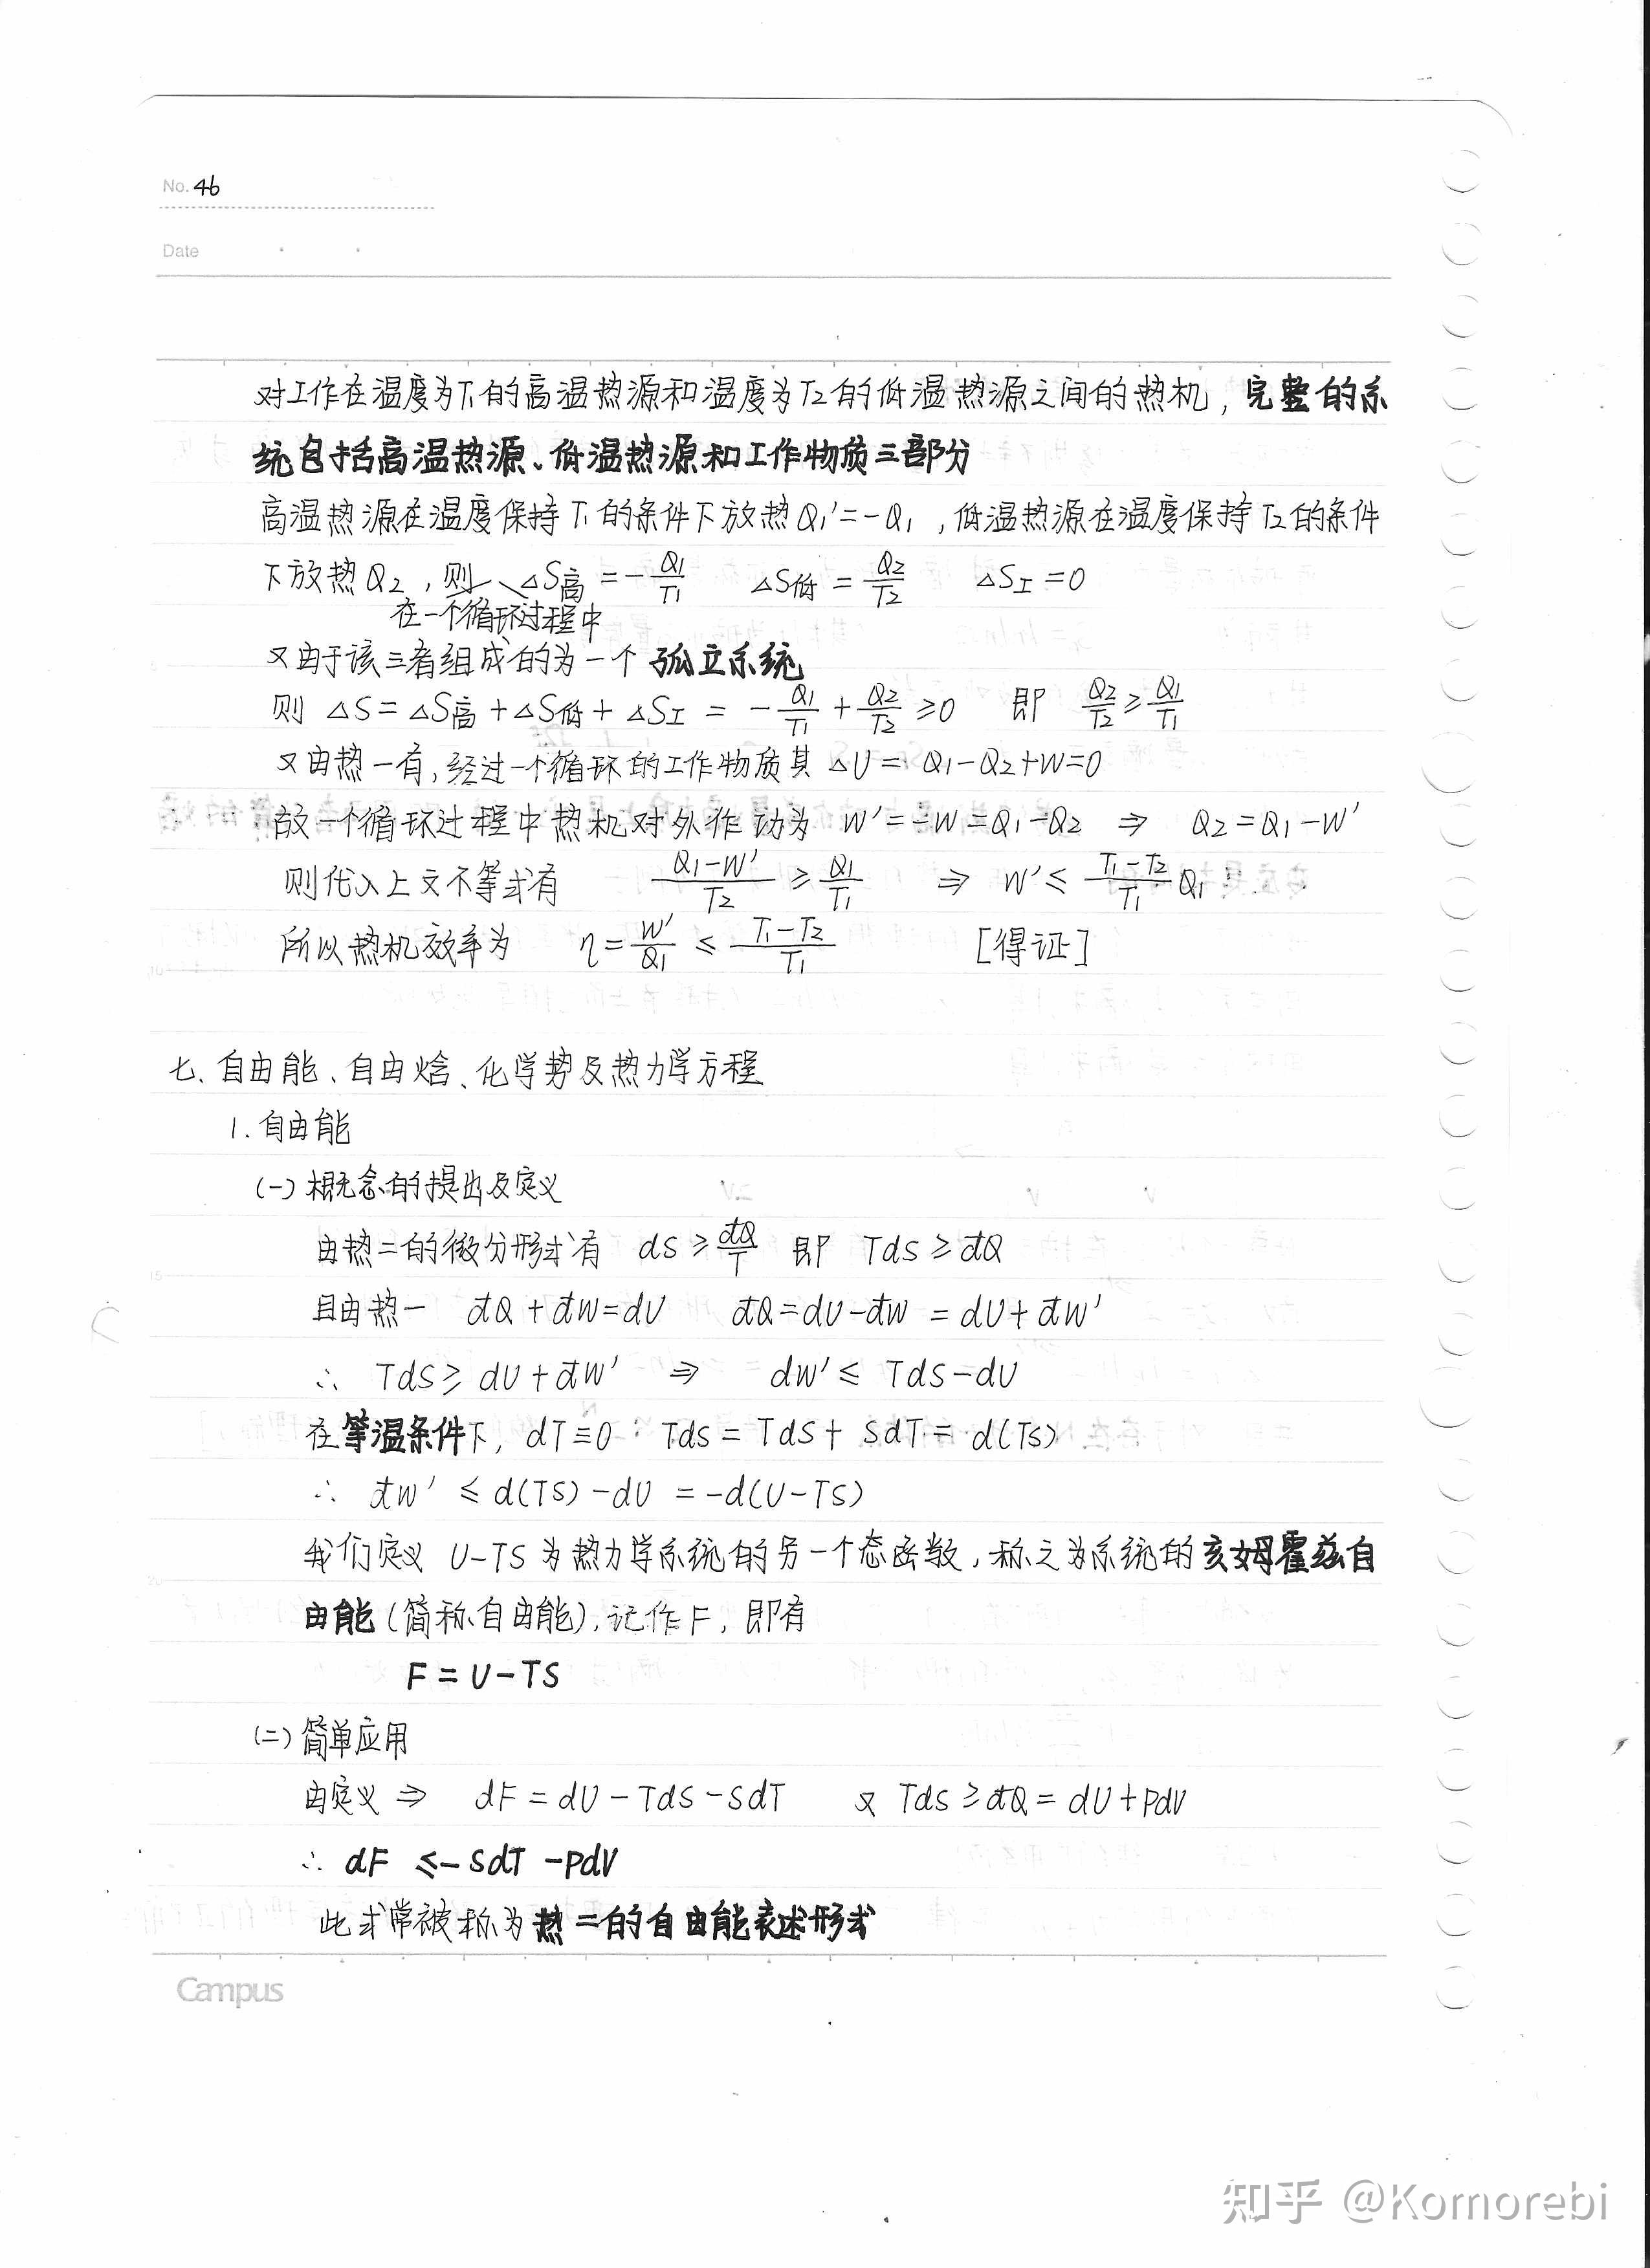 No. 46
Date
对工作在温度为T₁的高温热源和温度为T₂的低温热源之间的热机，完整的系
统包括高温热源、低温热源和工作物质三部分
高温热源在温度保持T₁的条件下放热Q₁'=-Q₁，低温热源在温度保持T₂的条件
下放热Q₂，则 ΔS高=-Q₁/T₁ ΔS低=Q₂/T₂ ΔS工=0
在一个循环过程中
又由于该三者组成的为一个孤立系统
则 ΔS=ΔS高+ΔS低+ΔS工=-Q₁/T₁+Q₂/T₂≥0 即 Q₂/T₂≥Q₁/T₁
又由热一有，经过一个循环的工作物质其ΔU=Q₁-Q₂+W=0
故一个循环过程中热机对外作功为 W'=-W=Q₁-Q₂ ⇒ Q₂=Q₁-W'
则代入上文不等式有 (Q₁-W')/T₂ ≥ Q₁/T₁ ⇒ W'≤(T₁-T₂)/T₁ Q₁
所以热机效率为 η=W'/Q₁ ≤ (T₁-T₂)/T₁ [得证]
七、自由能、自由焓、化学势及热力学方程
1. 自由能
(一) 概念的提出及定义
由热二的微分形式有 dS≥đQ/T 即 TdS≥đQ
且由热一 đQ+đW=dU đQ=dU-đW=dU+đW'
∴ TdS≥dU+đW' ⇒ dW'≤TdS-dU
在等温条件下，dT≡0：TdS=TdS+SdT=d(TS)
∴ đW'≤d(TS)-dU=-d(U-TS)
我们定义 U-TS为热力学系统的另一个态函数，称之为系统的亥姆霍兹自
由能(简称自由能)，记作F，即有
F=U-TS
(二) 简单应用
由定义⇒ dF=dU-TdS-SdT 又 TdS≥đQ=dU+PdV
∴ dF≤-SdT-PdV
此式常被称为热二的自由能表述形式
Campus
知乎 @Komorebi